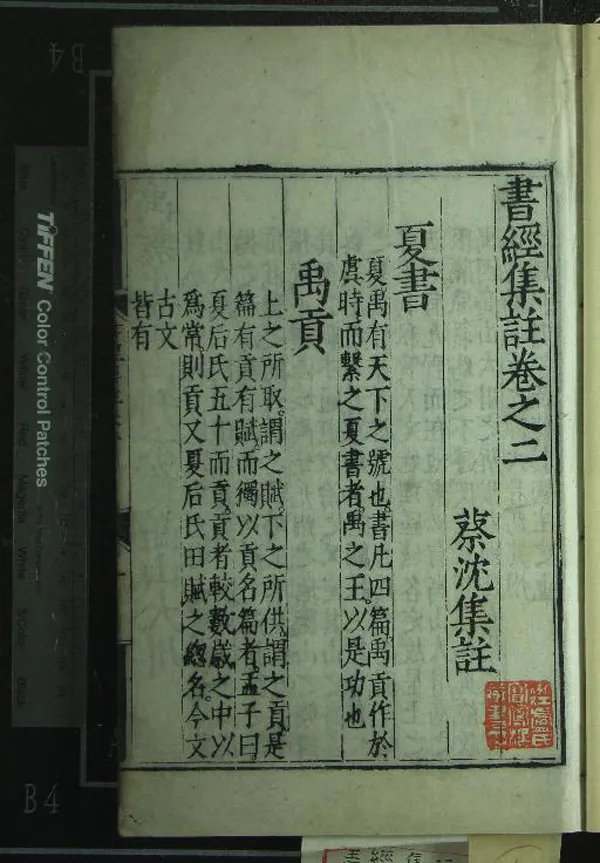 書經集註卷之二
蔡沈集註
夏書
夏禹有天下之號也。書凡四篇。禹貢作於
虞時而繫之夏書者。禹之王。以是功也
禹貢
上之所取。謂之賦。下之所供。謂之貢。是
篇有貢有賦。而獨以貢名篇者。孟子曰。
夏后氏五十而貢。貢者較數歲之中以
爲常。則貢又夏后氏田賦之總名。今文
古文
皆有
B4
B4
TIFFEN Color Control Patches
Magenta
White
Black